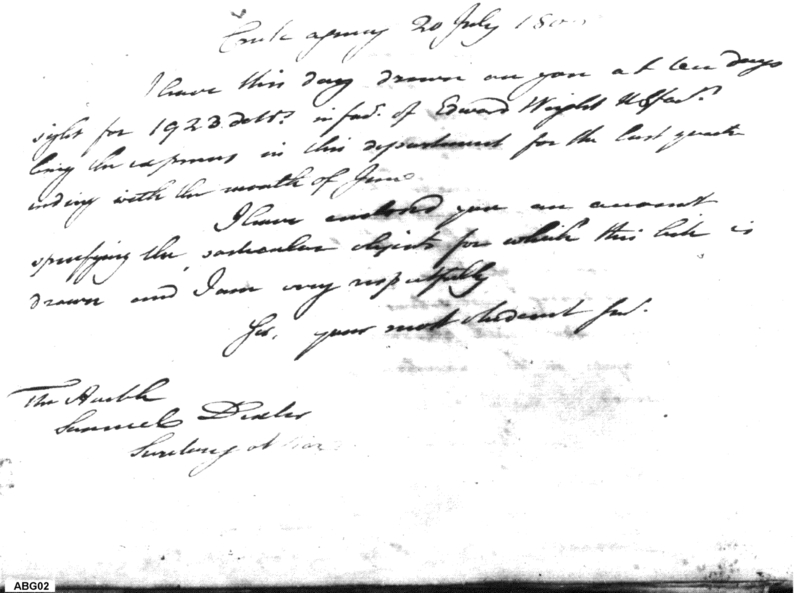 Creek agency 20 July 1800
I have this day drawn on you at ten days
sight for 1923 dolls. in favr. of Edward Wright U S fac.r
being the expenses in this department for the last quarter
ending with the month of June
I have enclosed you an account
specifying the particular objects for which this bill is
drawn and I am very respectfully
Sir, your most obedient Svt.
The Honble
Samuel Dexter
Secretary of War
ABG02